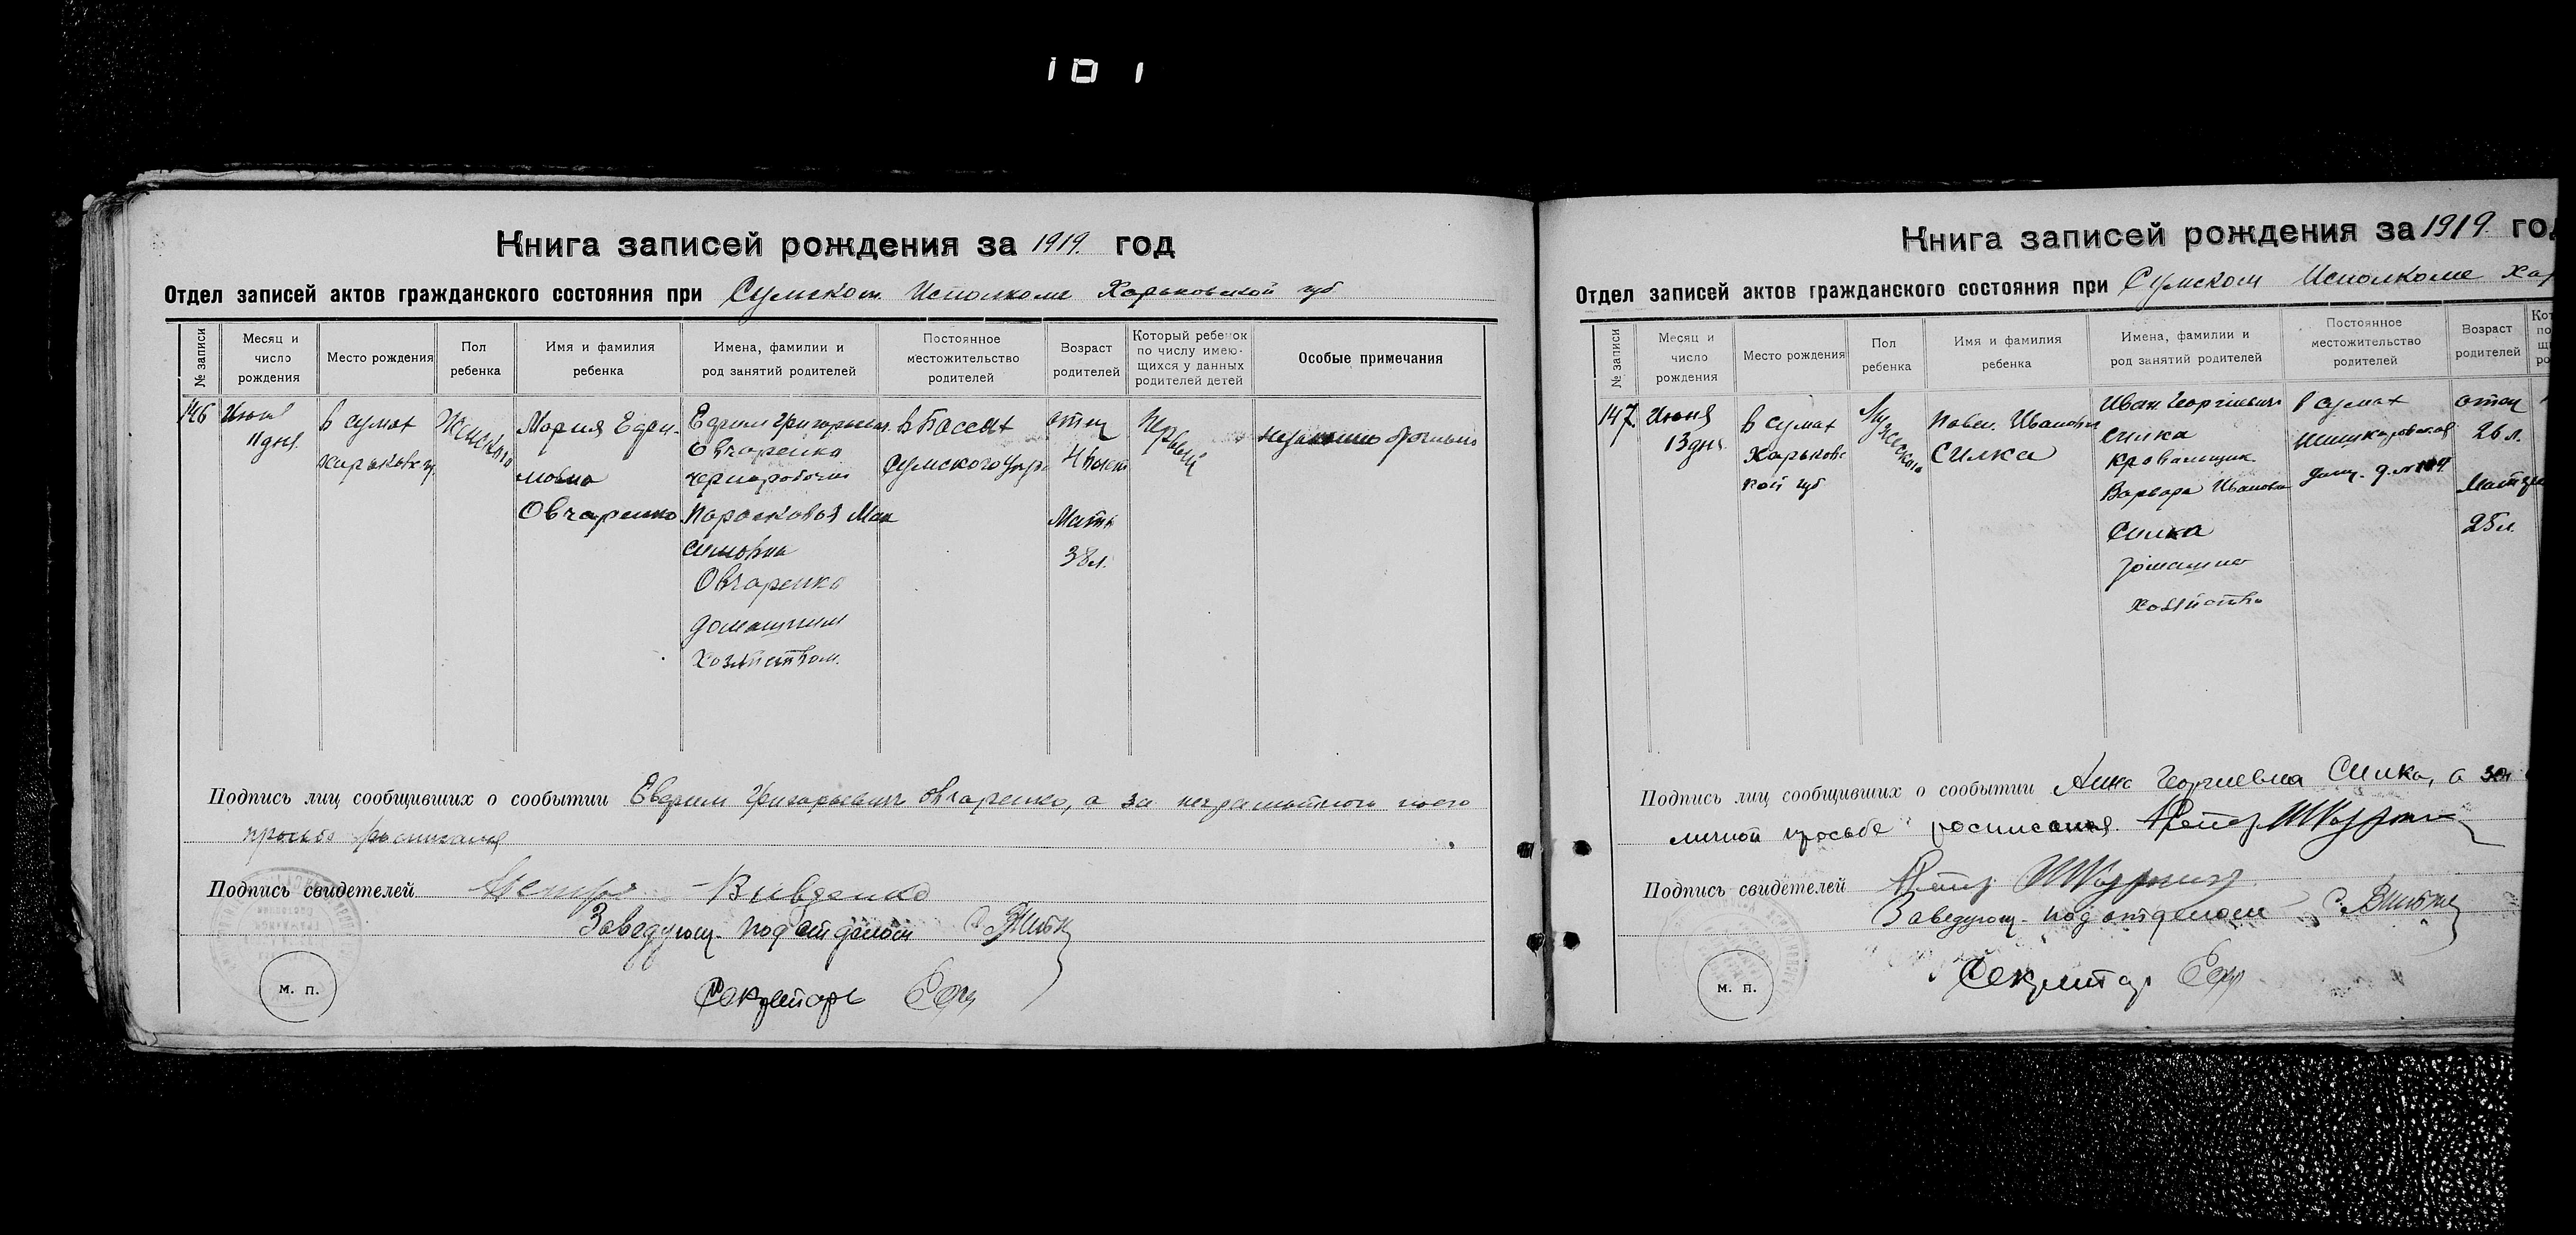 101
Книга записей рождения за 1919. год
Отдел записей актов гражданского состояния при Сумском Исполкоме Харьковской губ
№ записи
Месяц и число рождения
Место рождения
Пол ребенка
Имя и фамилия ребенка
Имена, фамилии и род занятий родителей
Постоянное местожительство родителей
Возраст родителей
Который ребенок по числу имею-щихся у данных родителей детей
Особые примечания
146
Июня
11 дня.
в сумах
харьковс г.
Женского
Мария Ефи-
мовна
Овчаренко
Ефим Григорьевич.
Овчаренко
чернорабочий
Парасковья Мак
симовна
Овчаренко
домашним
хозяйством.
в Бассах
Сумского у
отец
Мать
38 л.
Первый
Подпись лиц сообщивших о сообытии Григорьевич Овчаренко, а за неграмотного его
просьбе росписался
Подпись свидетелей Вивденко
Заведующ. подотделом
Секретарь
м. п.
Книга записей рождения за 1919 го
Отдел записей актов гражданского состояния при Сумском Исполкоме Хар
№ записи
Месяц и число рождения
Место рождения
Пол ребенка
Имя и фамилия ребенка
Имена, фамилии и род занятий родителей
Постоянное местожительство родителей
Возраст родителей
147.
Июня
13 дня
в сумах
Харьковс
кой губ
Мужеского
Павел Иванович
Силка
Иван Георгиевич
Силка
кровельщик
Варвара Ивановна
Силка
домашнее
хозяйство
в сумах
отец
26 л.
Мать
25 л.
Подпись лиц сообщивших о сообытии Анна Георгиевна Силка, а за
личной просьбе росписался. Петр
Подпись свидетелей Петр
Заведующ. подотделом
Секретар
м. п.